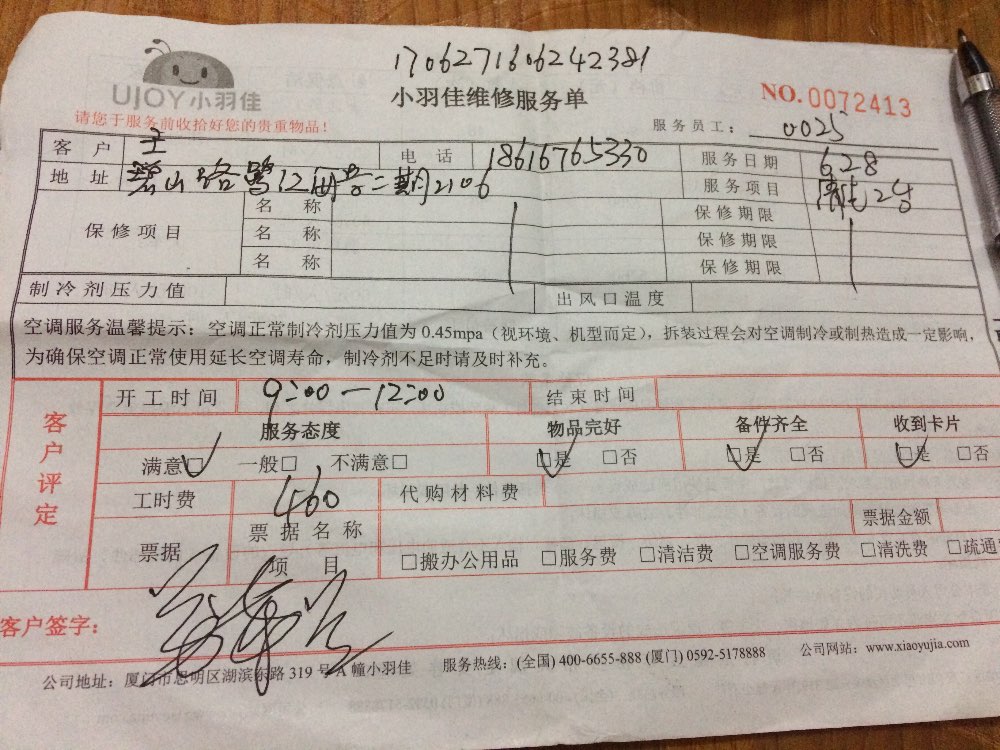 1706271606242381
UJOY小羽佳
小羽佳维修服务单
NO.0072413
请您于服务前收拾好您的贵重物品!
服务员工: 0025
客户 王 电话 18616765330 服务日期 6.28
地址 碧山路鹭江海岸二期2106 服务项目 2台
保修项目 名称 保修期限
名称 保修期限
名称 保修期限
制冷剂压力值 出风口温度
空调服务温馨提示: 空调正常制冷剂压力值为 0.45mpa (视环境、机型而定), 拆装过程会对空调制冷或制热造成一定影响,
为确保空调正常使用延长空调寿命, 制冷剂不足时请及时补充。
客户评定
开工时间 9:00—12:00 结束时间
服务态度 物品完好 备件齐全 收到卡片
满意☑ 一般□ 不满意□ ☑是 □否 ☑是 □否 ☑是 □否
工时费 460 代购材料费
票据 票据名称 票据金额
项目 □搬办公用品 □服务费 □清洁费 □空调服务费 □清洗费 □疏通
客户签字:
公司地址: 厦门市思明区湖滨东路 319 号 A 幢小羽佳 服务热线: (全国) 400-6655-888 (厦门) 0592-5178888 公司网站: www.xiaoyujia.com